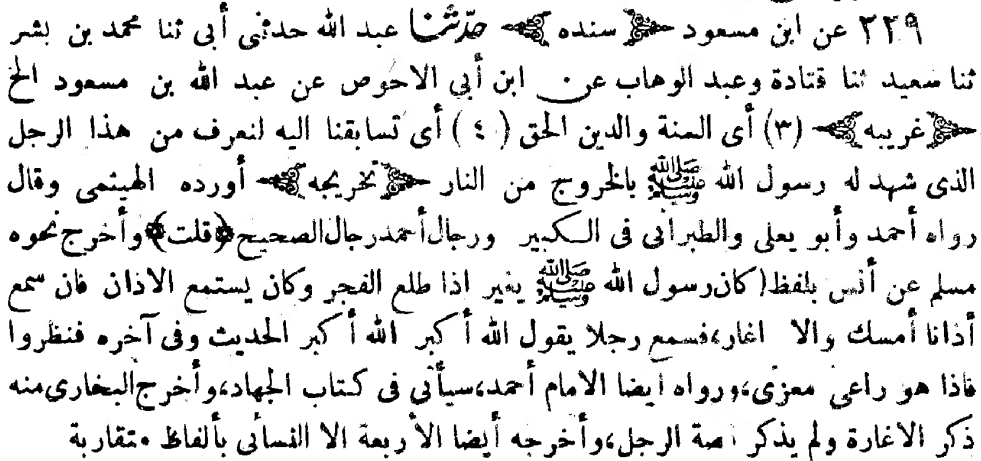 ٢٢٩ عن ابن مسعود ﴿ سنده ﴾ حدثنا عبد الله حدثنى أبى ثنا محمد بن بشر
ثنا سعيد ثنا قتادة وعبد الوهاب عن ابن أبي الاحوص عن عبد الله بن مسعود الخ
﴿ غريبه ﴾ (٣) أى السنة والدين الحق ( ٤ ) أى تسابقنا اليه لنعرف من هذا الرجل
الذى شهد له رسول الله ﷺ بالخروج من النار ﴿ تخريجه ﴾ أورده الهيثمى وقال
رواه أحمد وأبو يعلى والطبرانى فى الكبير ورجال أحمد رجال الصحيح ﴿قلت﴾ وأخرج نحوه
مسلم عن أنس بلفظ (كان رسول الله ﷺ يغير اذا طلع الفجر وكان يستمع الاذان فان سمع
أذانا أمسك والا اغار، فسمع رجلا يقول الله أكبر الله أكبر الحديث وفى آخره فنظروا
فاذا هو راعى معزى، ورواه ايضا الامام أحمد، سيأتى فى كتاب الجهاد، وأخرج البخارى منه
ذكر الاغارة ولم يذكر قصة الرجل، وأخرجه أيضا الأربعة الا النسائى بألفاظ متقاربة